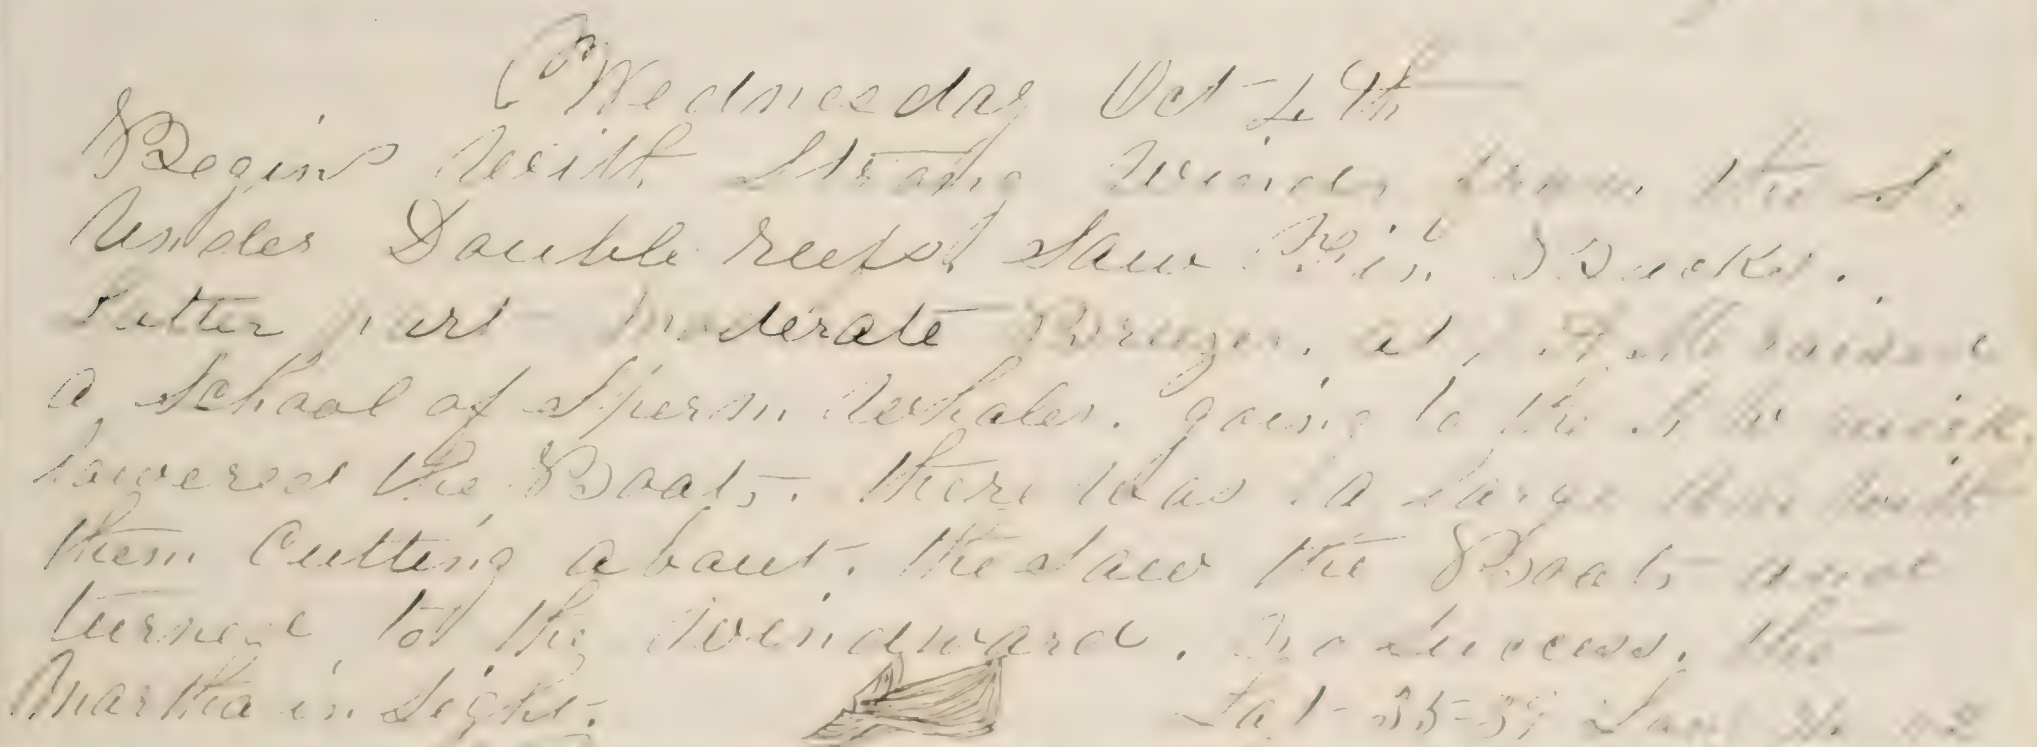 Wednesday Oct 4th
Begins With Strong Winds from the S.
Under Double reefs. Saw Fin Backs.
Latter part Moderate Breezes. at raised
a School of Sperm Whales. going to the
lowered the Boats. there was a large one with
them Cutting about. the Saw the Boats and
turned to the Windward. no success. the
Martha in Sight.
Lat-35-39 Lon